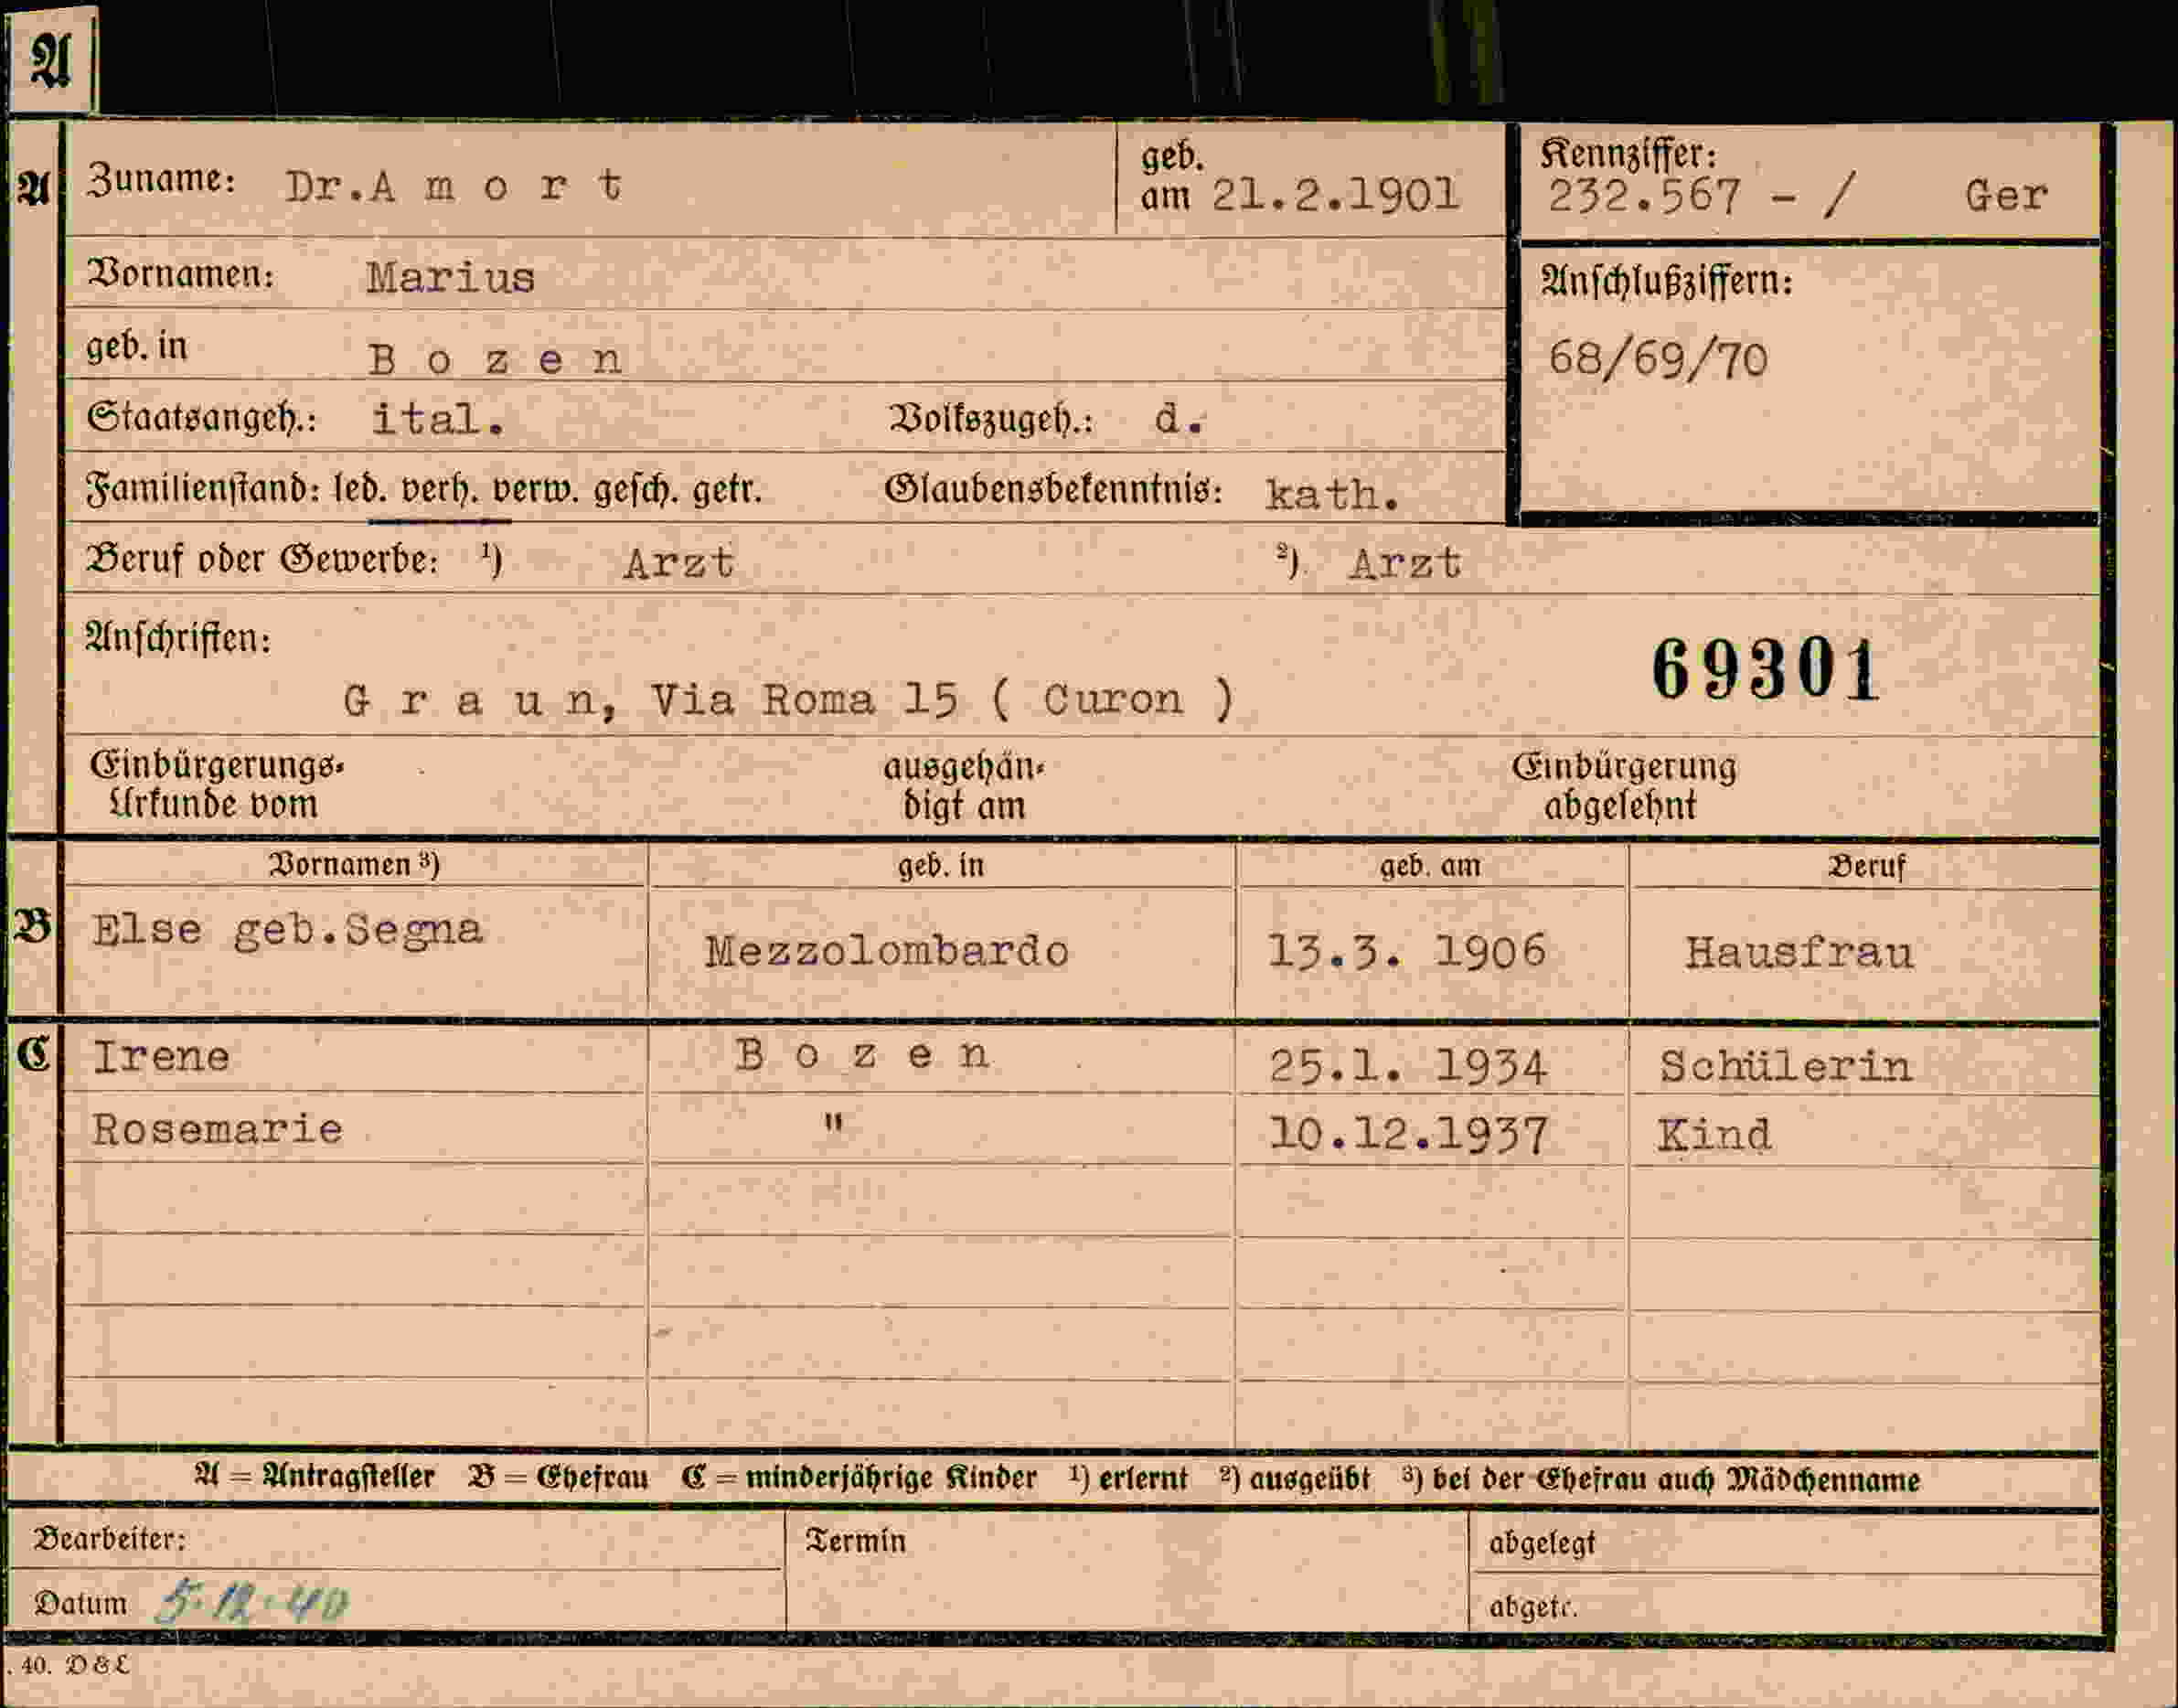 A
A Zuname: Dr.A m o r t geb. am 21.2.1901 Kennziffer: 232.567 - / Ger
Vornamen: Marius Anschlußziffern:
geb. in B o z e n 68/69/70
Staatsangeh.: ital. Volkszugeh.: d.
Familienstand: led. verh. verw. gesch. getr. Glaubensbekenntnis: kath.
Beruf oder Gewerbe: ¹) Arzt ²) Arzt
Anschriften: 69301
G r a u n, Via Roma 15 ( Curon )
Einbürgerungs- ausgehän- Einbürgerung
Urkunde vom digt am abgelehnt
Vornamen ³) geb. in geb. am Beruf
B Else geb.Segna Mezzolombardo 13.3. 1906 Hausfrau
C Irene B o z e n 25.1. 1934 Schülerin
Rosemarie " 10.12.1937 Kind
A = Antragsteller B = Ehefrau C = minderjährige Kinder ¹) erlernt ²) ausgeübt ³) bei der Ehefrau auch Mädchenname
Bearbeiter: Termin abgelegt
Datum 5.12.40 abgetr.
. 40. D & L